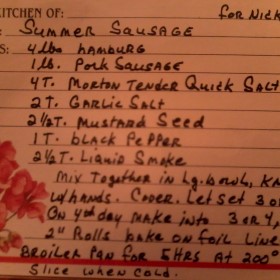 KITCHEN OF: for NICK
: SUMMER SAUSAGE
S: 4 lbs HAMBURG
1 lb. PORK SAUSAGE
4T. MORTON TENDER QUICK SALT
2T. GARLIC SALT
2½T. MUSTARD SEED
1T. BLACK PEPPER
2½T. LIQUID SMOKE
MIX TOGETHER IN LG. BOWL,
W/HANDS. COVER. LET SET 3 OR
ON 4th DAY MAKE INTO 3 OR 4,
2" ROLLS BAKE ON FOIL LINE
BROILER PAN FOR 5 HRS AT 200°
SLICE WHEN COLD.